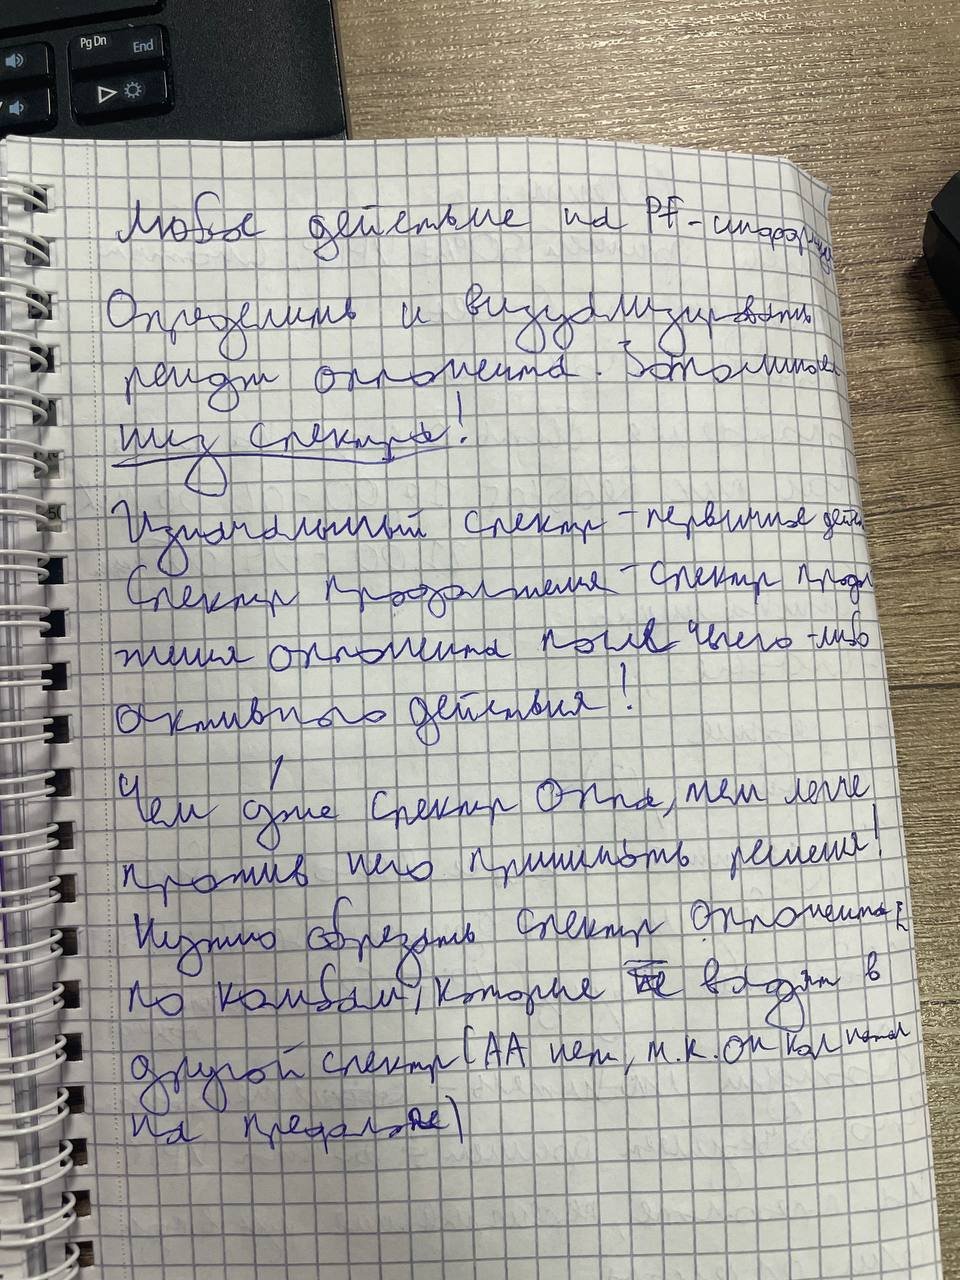 Pg Dn
End
Любое действие на PF-информация
Определить и визуализировать
рендж оппонента. Запоминаем
спектры!
Изначальный спектр - первичное дейст
Спектр продолжения - спектр продол
жения оппонента после чьего-либо
активного действия!
Чем уже спектр Оппа, тем легче
против него принимать решения!
Нужно обрезать спектр оппонента
по комбам, которые не входят в
другой спектр (АА нет, т.к. он кол
на префлопе)